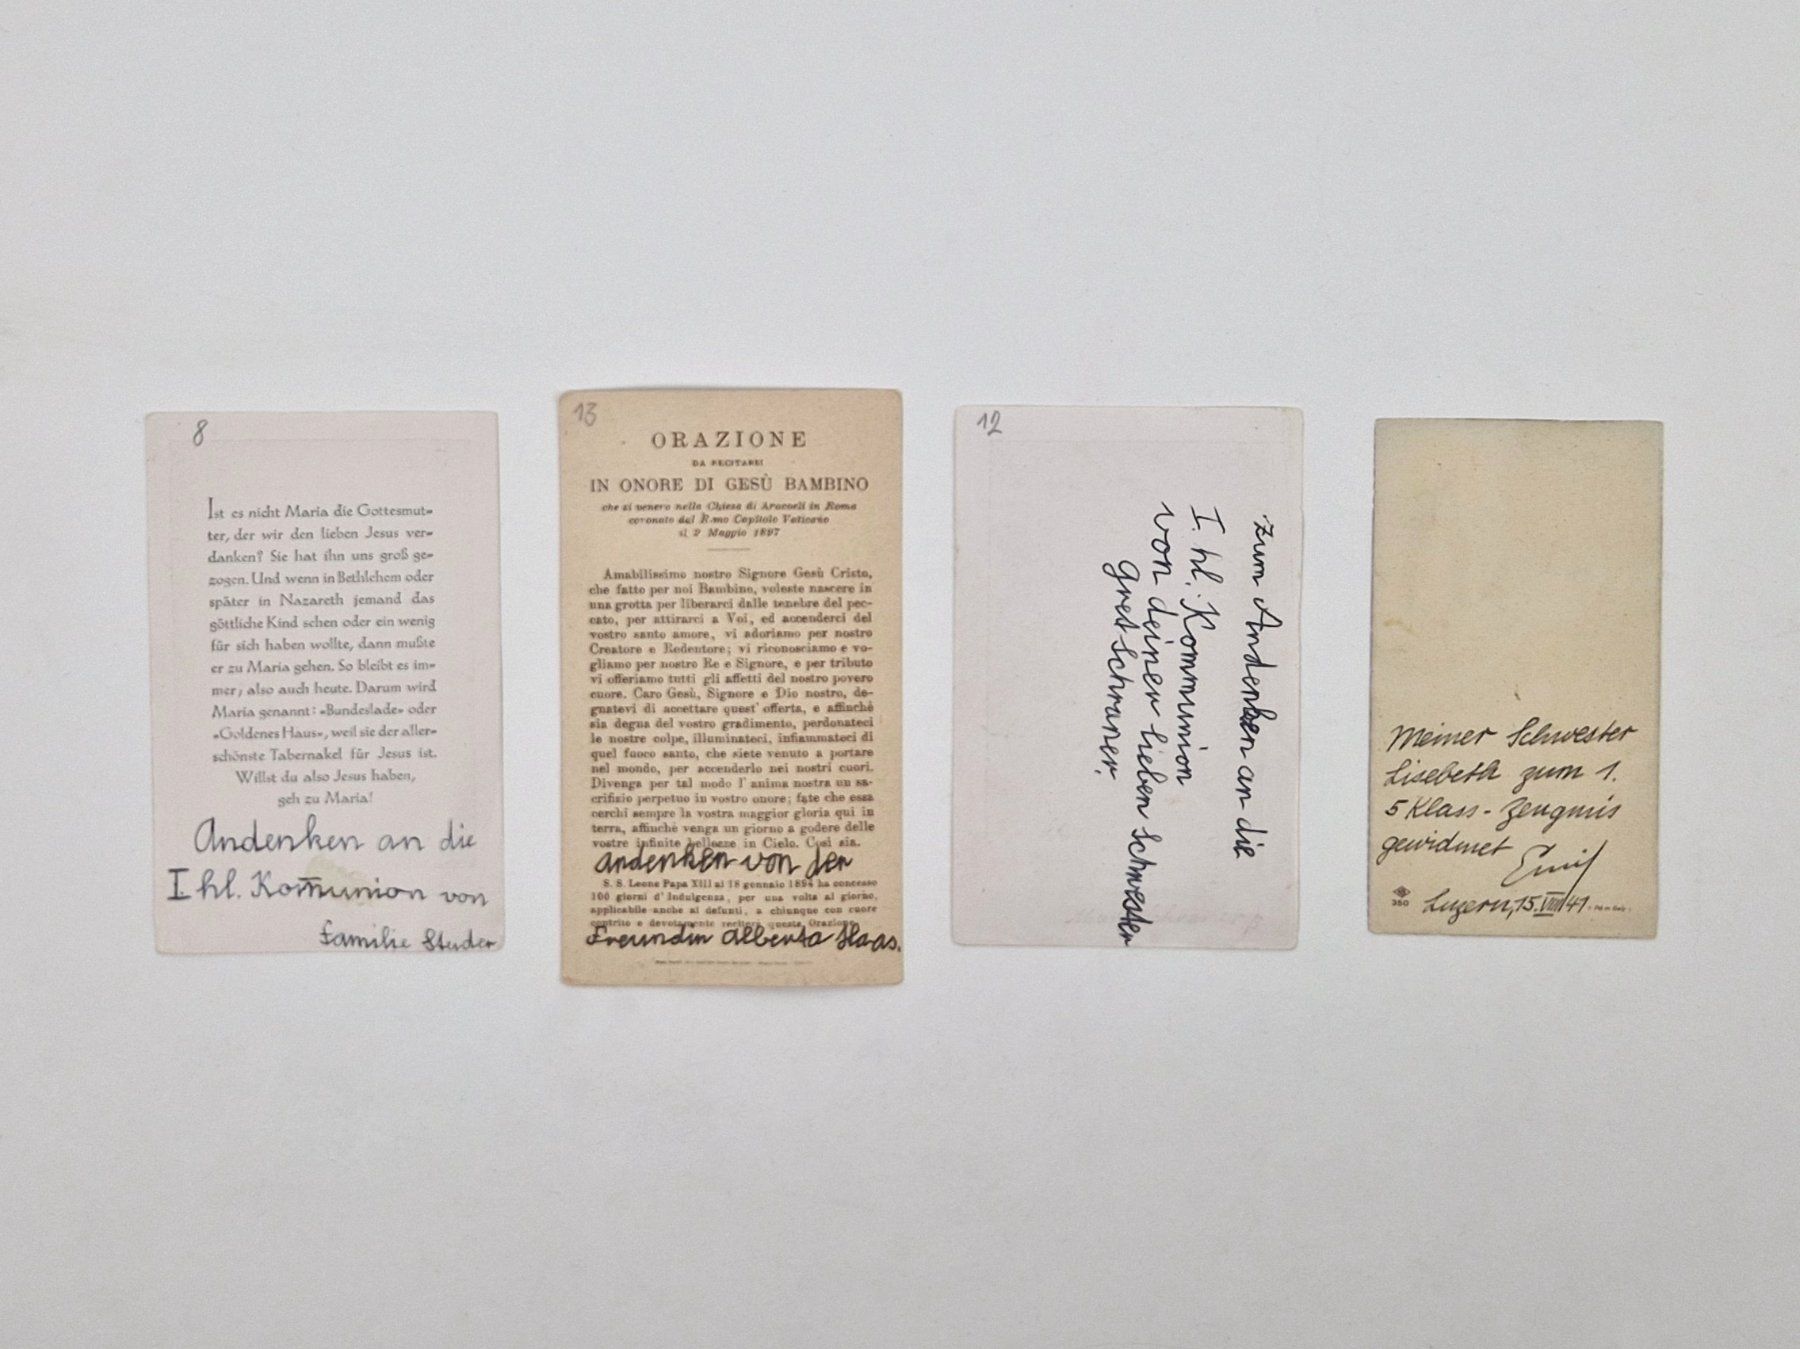 8
Ist es nicht Maria die Gottesmut=
ter, der wir den lieben Jesus ver=
danken? Sie hat ihn uns groß ge=
zogen. Und wenn in Bethlehem oder
später in Nazareth jemand das
göttliche Kind sehen oder ein wenig
für sich haben wollte, dann mußte
er zu Maria gehen. So bleibt es im=
mer; also auch heute. Darum wird
Maria genannt: «Bundeslade» oder
«Goldenes Haus», weil sie der aller=
schönste Tabernakel für Jesus ist.
Willst du also Jesus haben,
geh zu Maria!
Andenken an die
I hl. Kom̅union von
Familie Studer
13
ORAZIONE
DA RECITARSI
IN ONORE DI GESÙ BAMBINO
che si venera nella Chiesa di Aracoeli in Roma
coronato dal R.mo Capitolo Vaticano
il 2 Maggio 1897
Amabilissimo nostro Signore Gesù Cristo,
che fatto per noi Bambino, voleste nascere in
una grotta per liberarci dalle tenebre del pec-
cato, per attirarci a Voi, ed accenderci del
vostro santo amore, vi adoriamo per nostro
Creatore e Redentore; vi riconosciamo e vo-
gliamo per nostro Re e Signore, e per tributo
vi offeriamo tutti gli affetti del nostro povero
cuore. Caro Gesù, Signore e Dio nostro, de-
gnatevi di accettare quest' offerta, e affinchè
sia degna del vostro gradimento, perdonateci
le nostre colpe, illuminateci, infiammateci di
quel fuoco santo, che siete venuto a portare
nel mondo, per accenderlo nei nostri cuori.
Divenga per tal modo l' anima nostra un sa-
crifizio perpetuo in vostro onore; fate che essa
cerchi sempre la vostra maggior gloria qui in
terra, affinchè venga un giorno a godere delle
vostre infinite bellezze in Cielo. Così sia.
Andenken von der
S. S. Leone Papa XIII ai 18 gennaio 1894 ha concesso
100 giorni d' Indulgenza, per una volta al giorno,
applicabile anche ai defunti, a chiunque con cuore
contrito e devotamente reciterà questa Orazione.
Freundin Alberta Haas.
12
Zum Andenken an die
I. hl. Kommunion
von deiner lieben Schwester
Gret Schraner.
Meiner Schwester
Lisebeth zum 1.
5 Klass-Zeugnis
gewidmet Emil
350
Luzern, 15. VIII 41